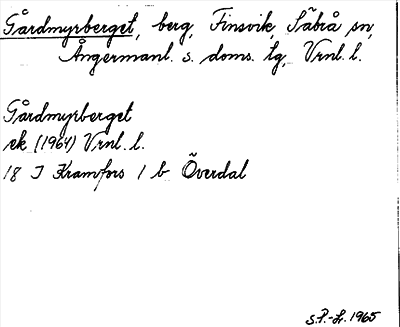 Gårdmyrberget, berg, Finsvik, Säbrå sn,
Ångermanl. s. doms. tg, Vrnl. l.
Gårdmyrberget
ek (1964) Vrnl. l.
18 I Kramfors 1 b Överdal
S.P.-Lr. 1965